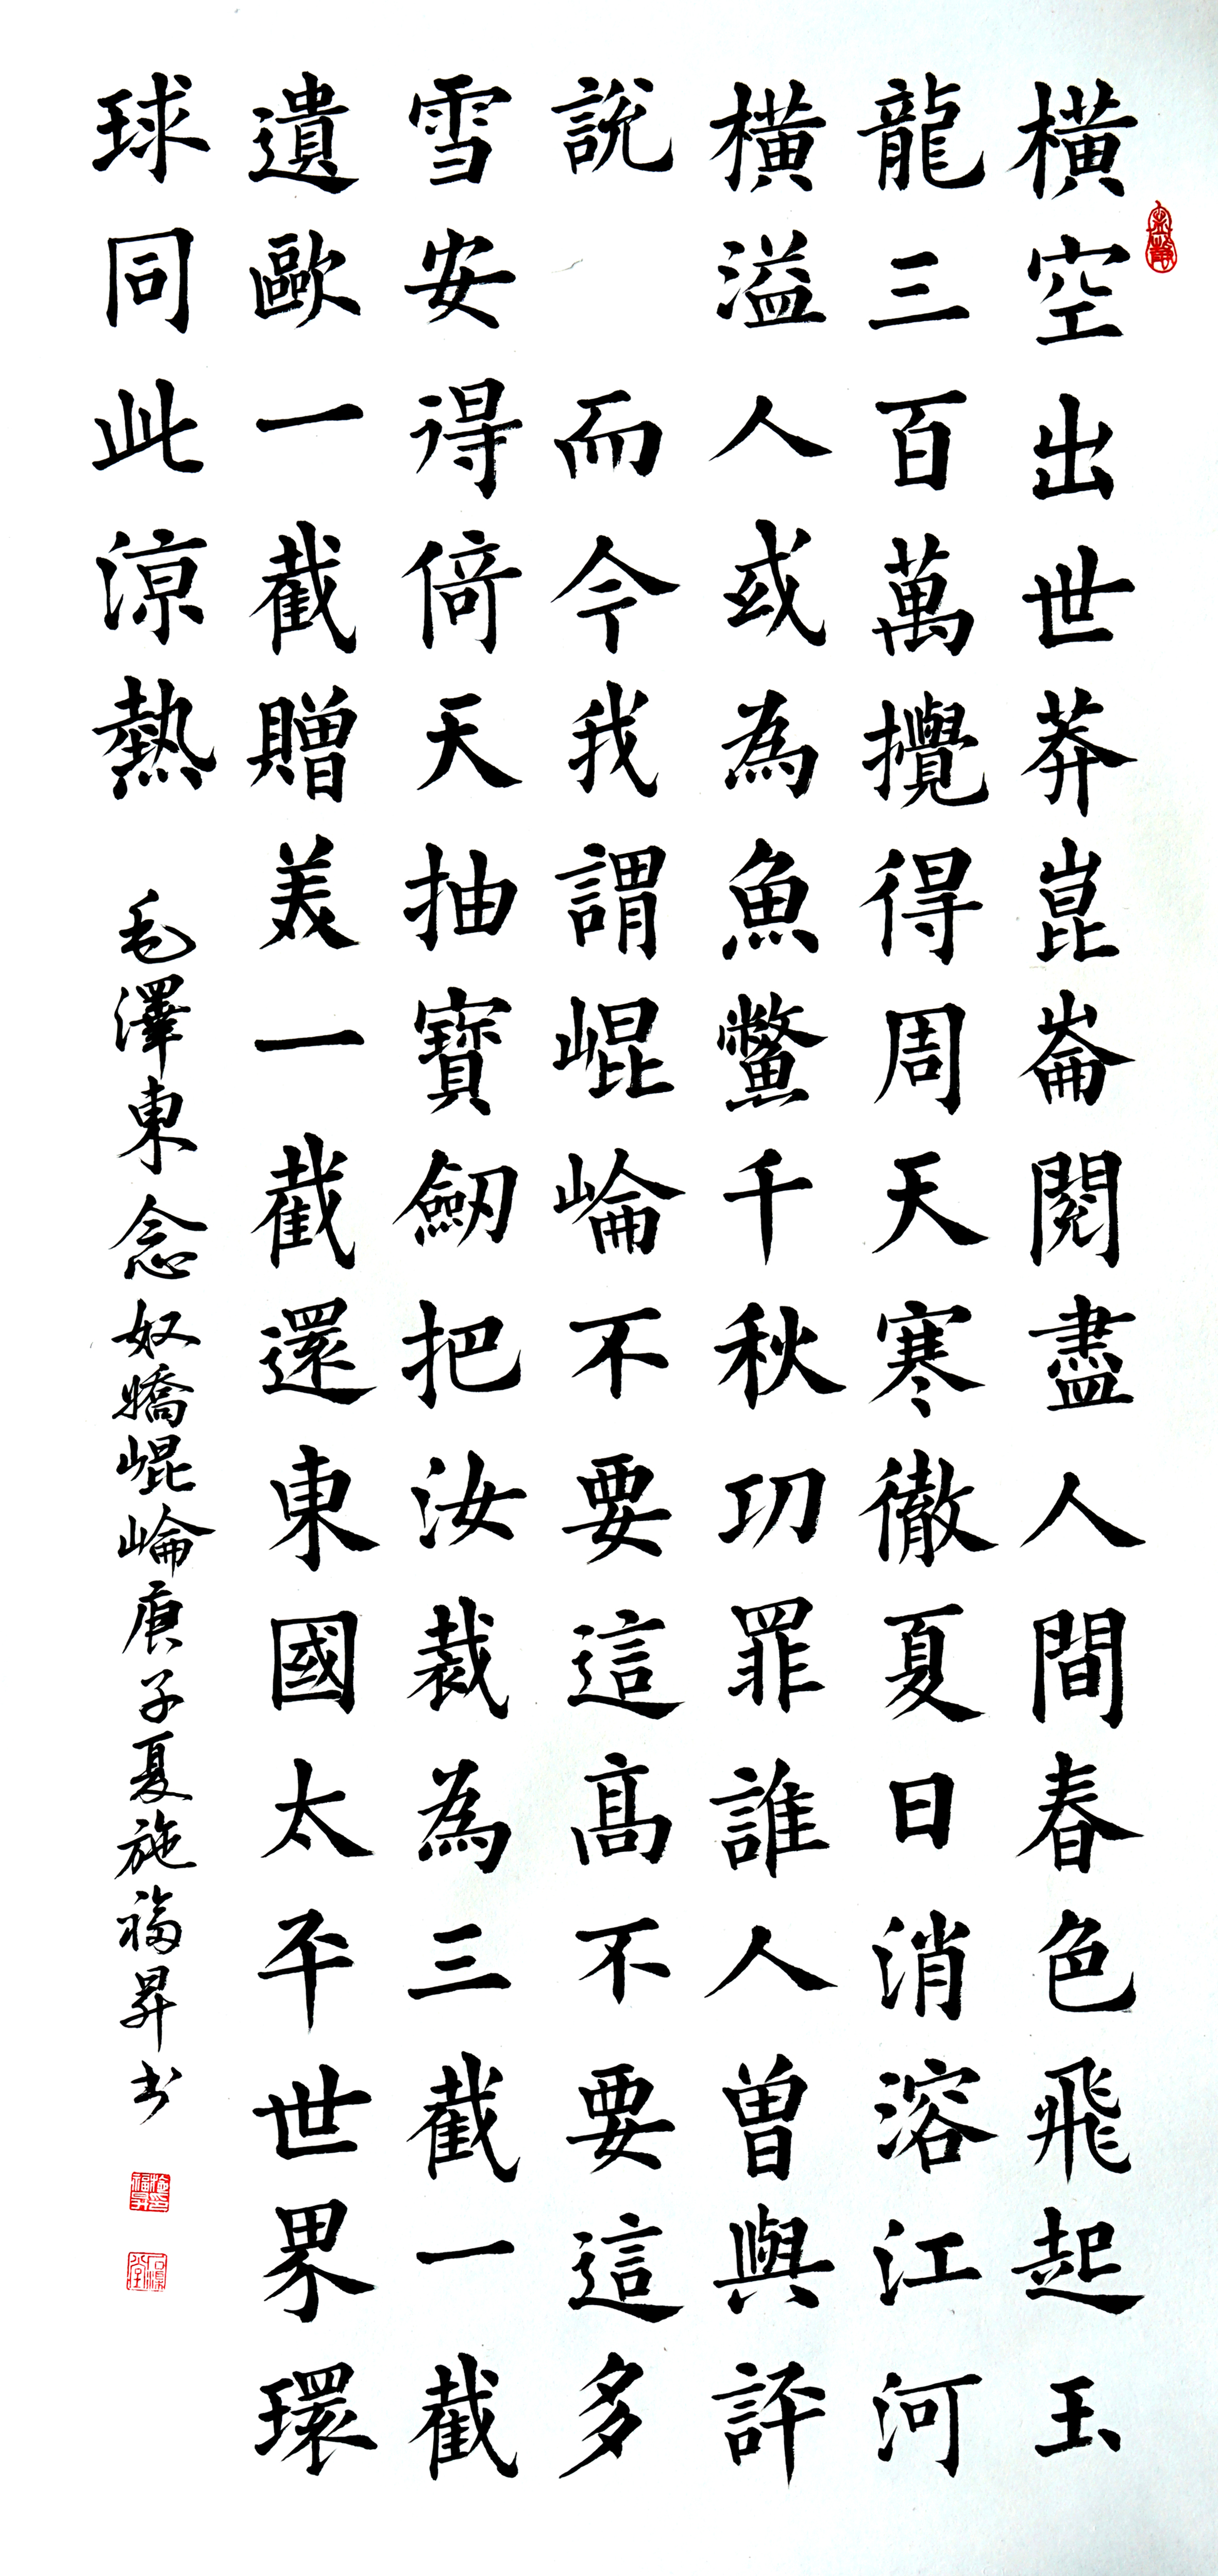 橫空出世莽崑崙閱盡人間春色飛起玉
龍三百萬攪得周天寒徹夏日消溶江河
橫溢人或為魚鱉千秋功罪誰人曾與評
說 而今我謂崐崘不要這高不要這多
雪安得倚天抽寶劒把汝裁為三截一截
遺歐一截贈美一截還東國太平世界環
球同此涼熱
毛澤東念奴嬌崐崘庚子夏施福昇书